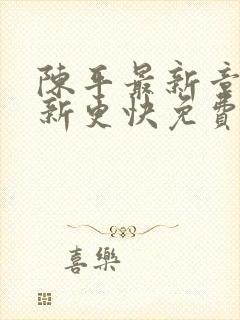 陳平最新章
新更快免費
喜樂